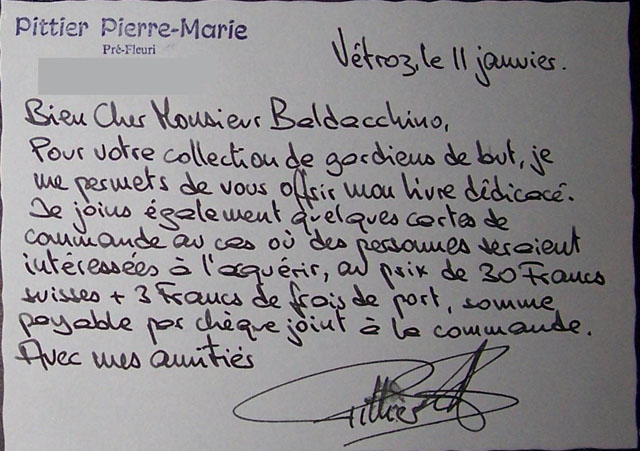 Pittier Pierre-Marie
Pré-Fleuri
Vétroz, le 11 janvier.
Bien Cher Monsieur Baldacchino,
Pour votre collection de gardiens de but, je
me permets de vous offrir mon livre dédicacé.
Je joins également quelques cartes de
commande au cas où des personnes seraient
intéressées à l'acquérir, au prix de 30 Francs
suisses + 3 Francs de frais de port, somme
payable par chèque joint à la commande.
Avec mes amitiés
Pittier